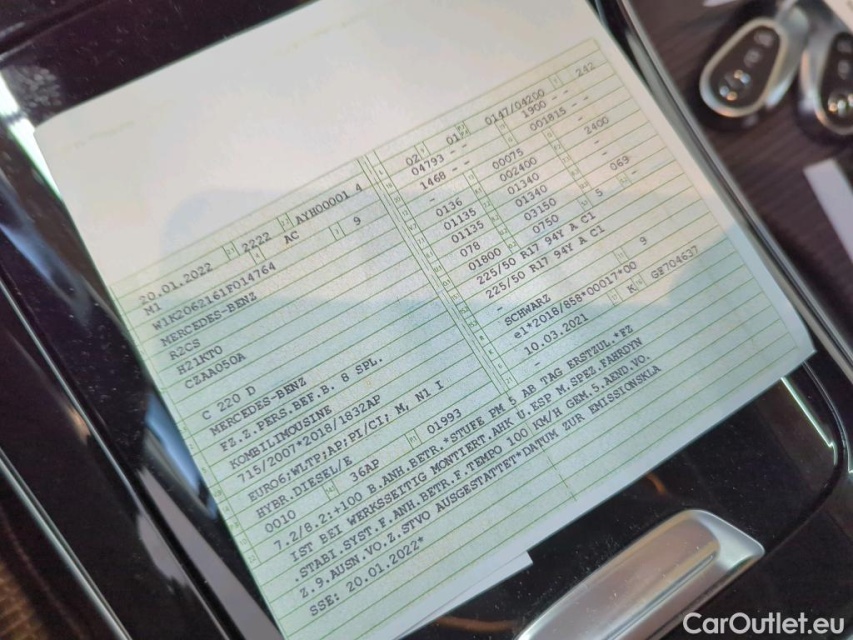 20.01.2022 2222 AYH00001 4
M1 AC 9
W1K2062161F014764
MERCEDES-BENZ
R2CS
H21KT0
CZAA050A
C 220 D
MERCEDES-BENZ
FZ.Z.PERS.BEF.B. 8 SPL.
KOMBILIMOUSINE
715/2007*2018/1832AP
EURO6;WLTP;AP;PI/CI; M, N1 I
HYBR.DIESEL/E
0010 36AP 01993
02 01 0147/04200 242
04793 - - 1900 - -
1468 - - 001815 - -
- 00075
0136 002400 2400
01135 01340
01135 01340 069
078 03150 -
01800 0750 5
225/50 R17 94Y A C1
225/50 R17 94Y A C1
-
SCHWARZ 9
e1*2018/858*00017*00
10.03.2021 K GE704637
-
7.2/8.2:+100 B.ANH.BETR.*STUFE PM 5 AB TAG ERSTZUL.*FZ
IST BEI WERKSSEITIG MONTIERT.AHK U.ESP M.SPEZ.FAHRDYN
.STABI.SYST.F.ANH.BETR.F.TEMPO 100 KM/H GEM.5.AEND.VO.
Z.9.AUSN.VO.Z.STVO AUSGESTATTET*DATUM ZUR EMISSIONSKLA
SSE: 20.01.2022*
CarOutlet.eu